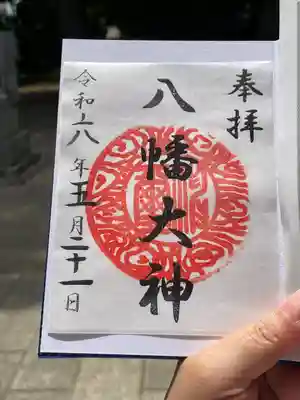 奉拝
八幡大神
令和六年五月二十一日